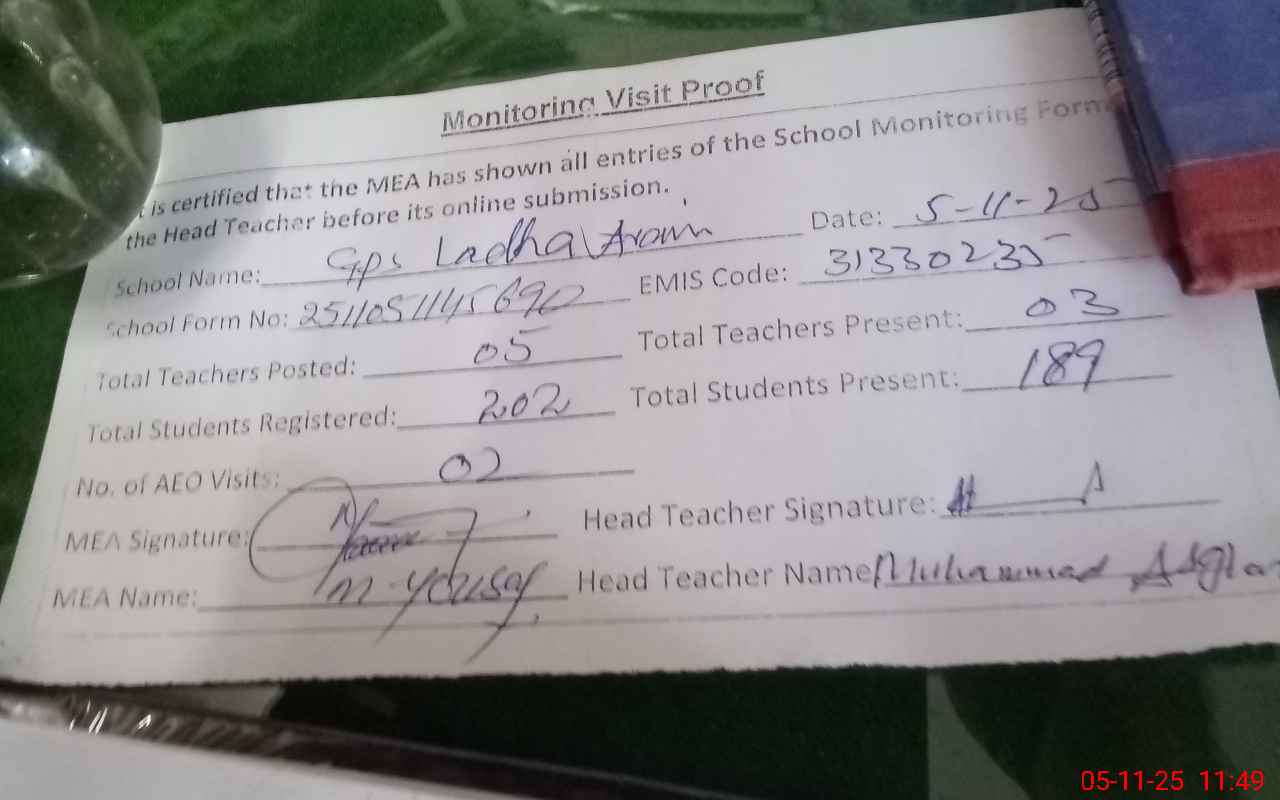 Monitoring Visit Proof
t is certified that the MEA has shown all entries of the School Monitoring Form
the Head Teacher before its online submission.
School Name: Gps Ladha Aram Date: 5-11-25
School Form No: 2511051145690 EMIS Code: 31330235
Total Teachers Posted: 05 Total Teachers Present: 03
Total Students Registered: 202 Total Students Present: 189
No. of AEO Visits: 02
MEA Signature: Head Teacher Signature:
MEA Name: M-yousaf Head Teacher Name Muhammad
05-11-25 11:49